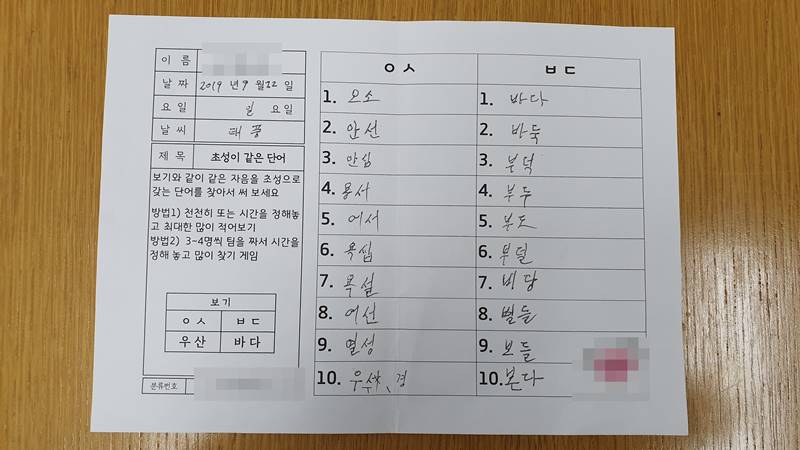 이 름
날 짜 2019 년 9 월 22 일
요 일 일 요 일
날 씨 태 풍
제 목 초성이 같은 단어
보기와 같이 같은 자음을 초성으로
갖는 단어를 찾아서 써 보세요
방법1) 천천히 또는 시간을 정해놓
고 최대한 많이 적어보기
방법2) 3~4명씩 팀을 짜서 시간을
정해 놓고 많이 찾기 게임
보 기
ㅇ ㅅ ㅂ ㄷ
우산 바다
분류번호
ㅇ ㅅ ㅂ ㄷ
1. 요소 1. 바다
2. 안선 2. 바둑
3. 안심 3. 부덕
4. 용서 4. 부두
5. 여서 5. 부도
6. 욕심 6. 부덜
7. 욕설 7. 비당
8. 어선 8. 별들
9. 열성 9. 보들
10. 10. 본다